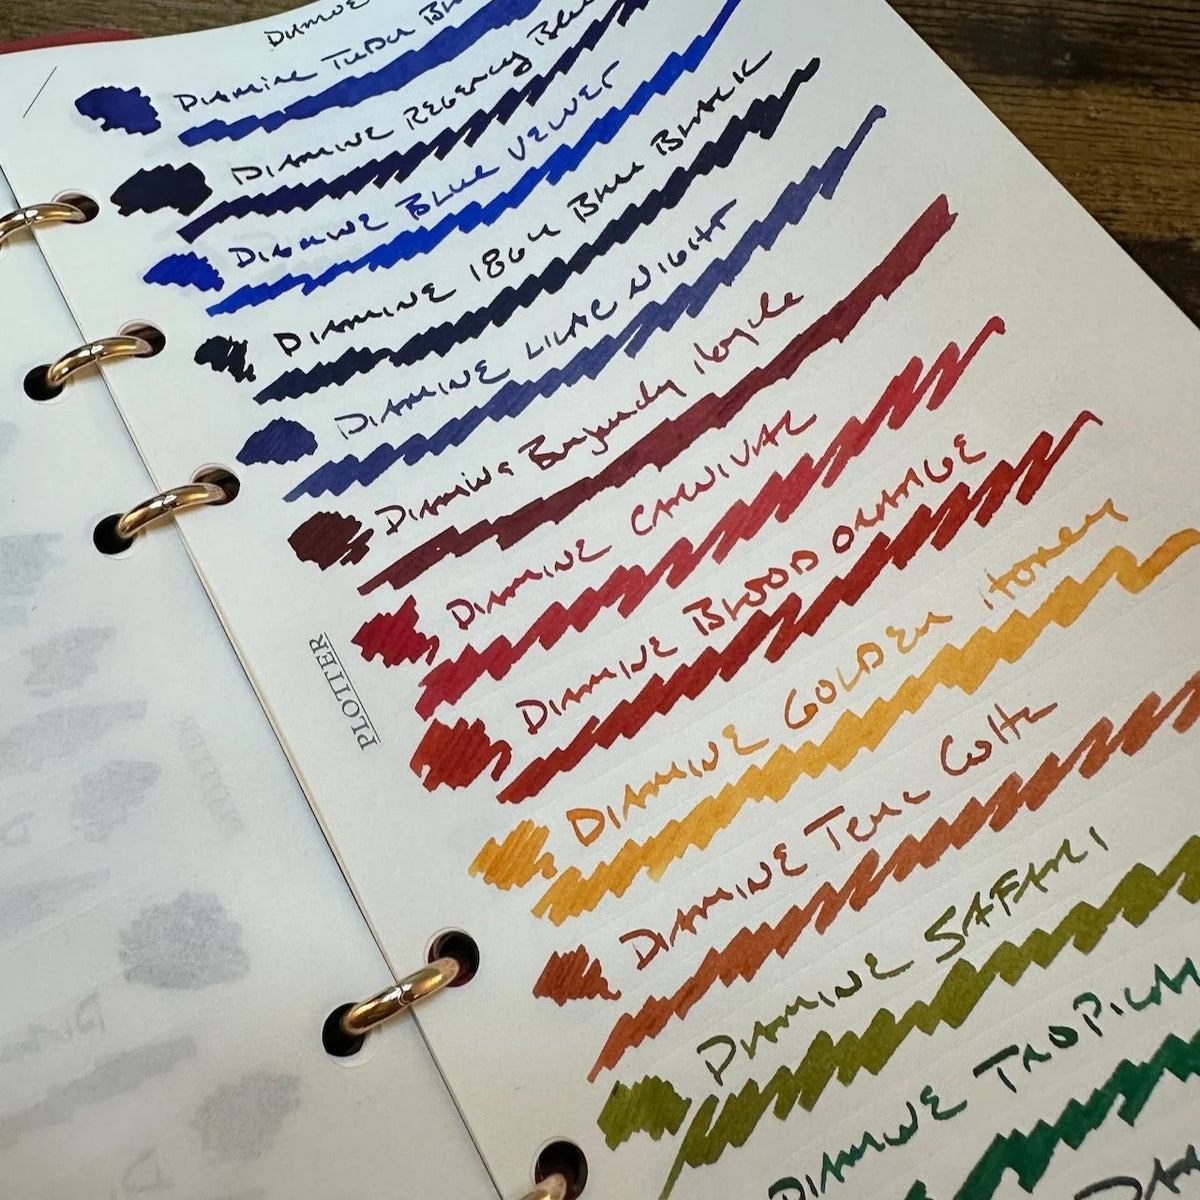 DIAMINE TUDOR
DIAMINE REGENCY Blue
DIAMINE BLUE VELVET
DIAMINE 1864 BLUE BLACK
DIAMINE LILAC NIGHT
DIAMINE Burgundy Royale
DIAMINE CARNIVAL
DIAMINE BLOOD ORANGE
DIAMINE GOLDEN HONEY
DIAMINE Terra Cotta
DIAMINE SAFARI
DIAMINE TROPICAL
PLOTTER